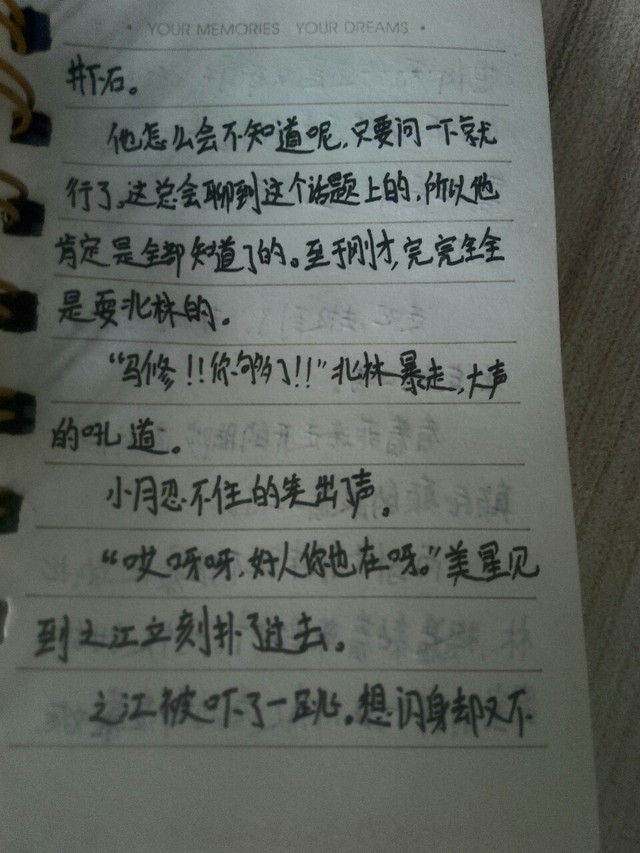 • YOUR MEMORIES YOUR DREAMS •
井下石。
他怎么会不知道呢，只要问一下就
行了。这总会聊到这个话题上的，所以他
肯定是全都知道了的。至于刚才，完完全全
是耍北林的。
“马修！！你够了！！”北林暴走，大声
的吼道。
小月忍不住的笑出了声。
“哎呀呀，好人你也在呀。”美星见
到之江立刻扑了过去。
之江被吓了一跳。想闪身却又不